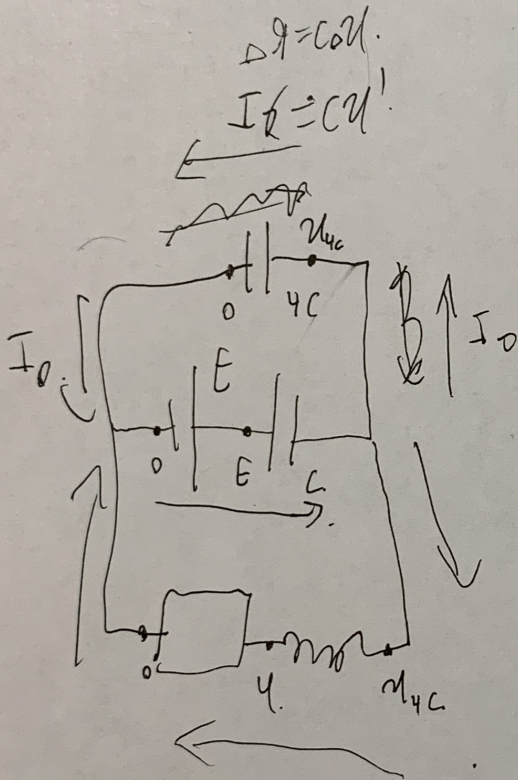 Δq=CΔU.
It=CU'
U4C
0
4C
I0
I0
E
0
E
C
0
U
U4C